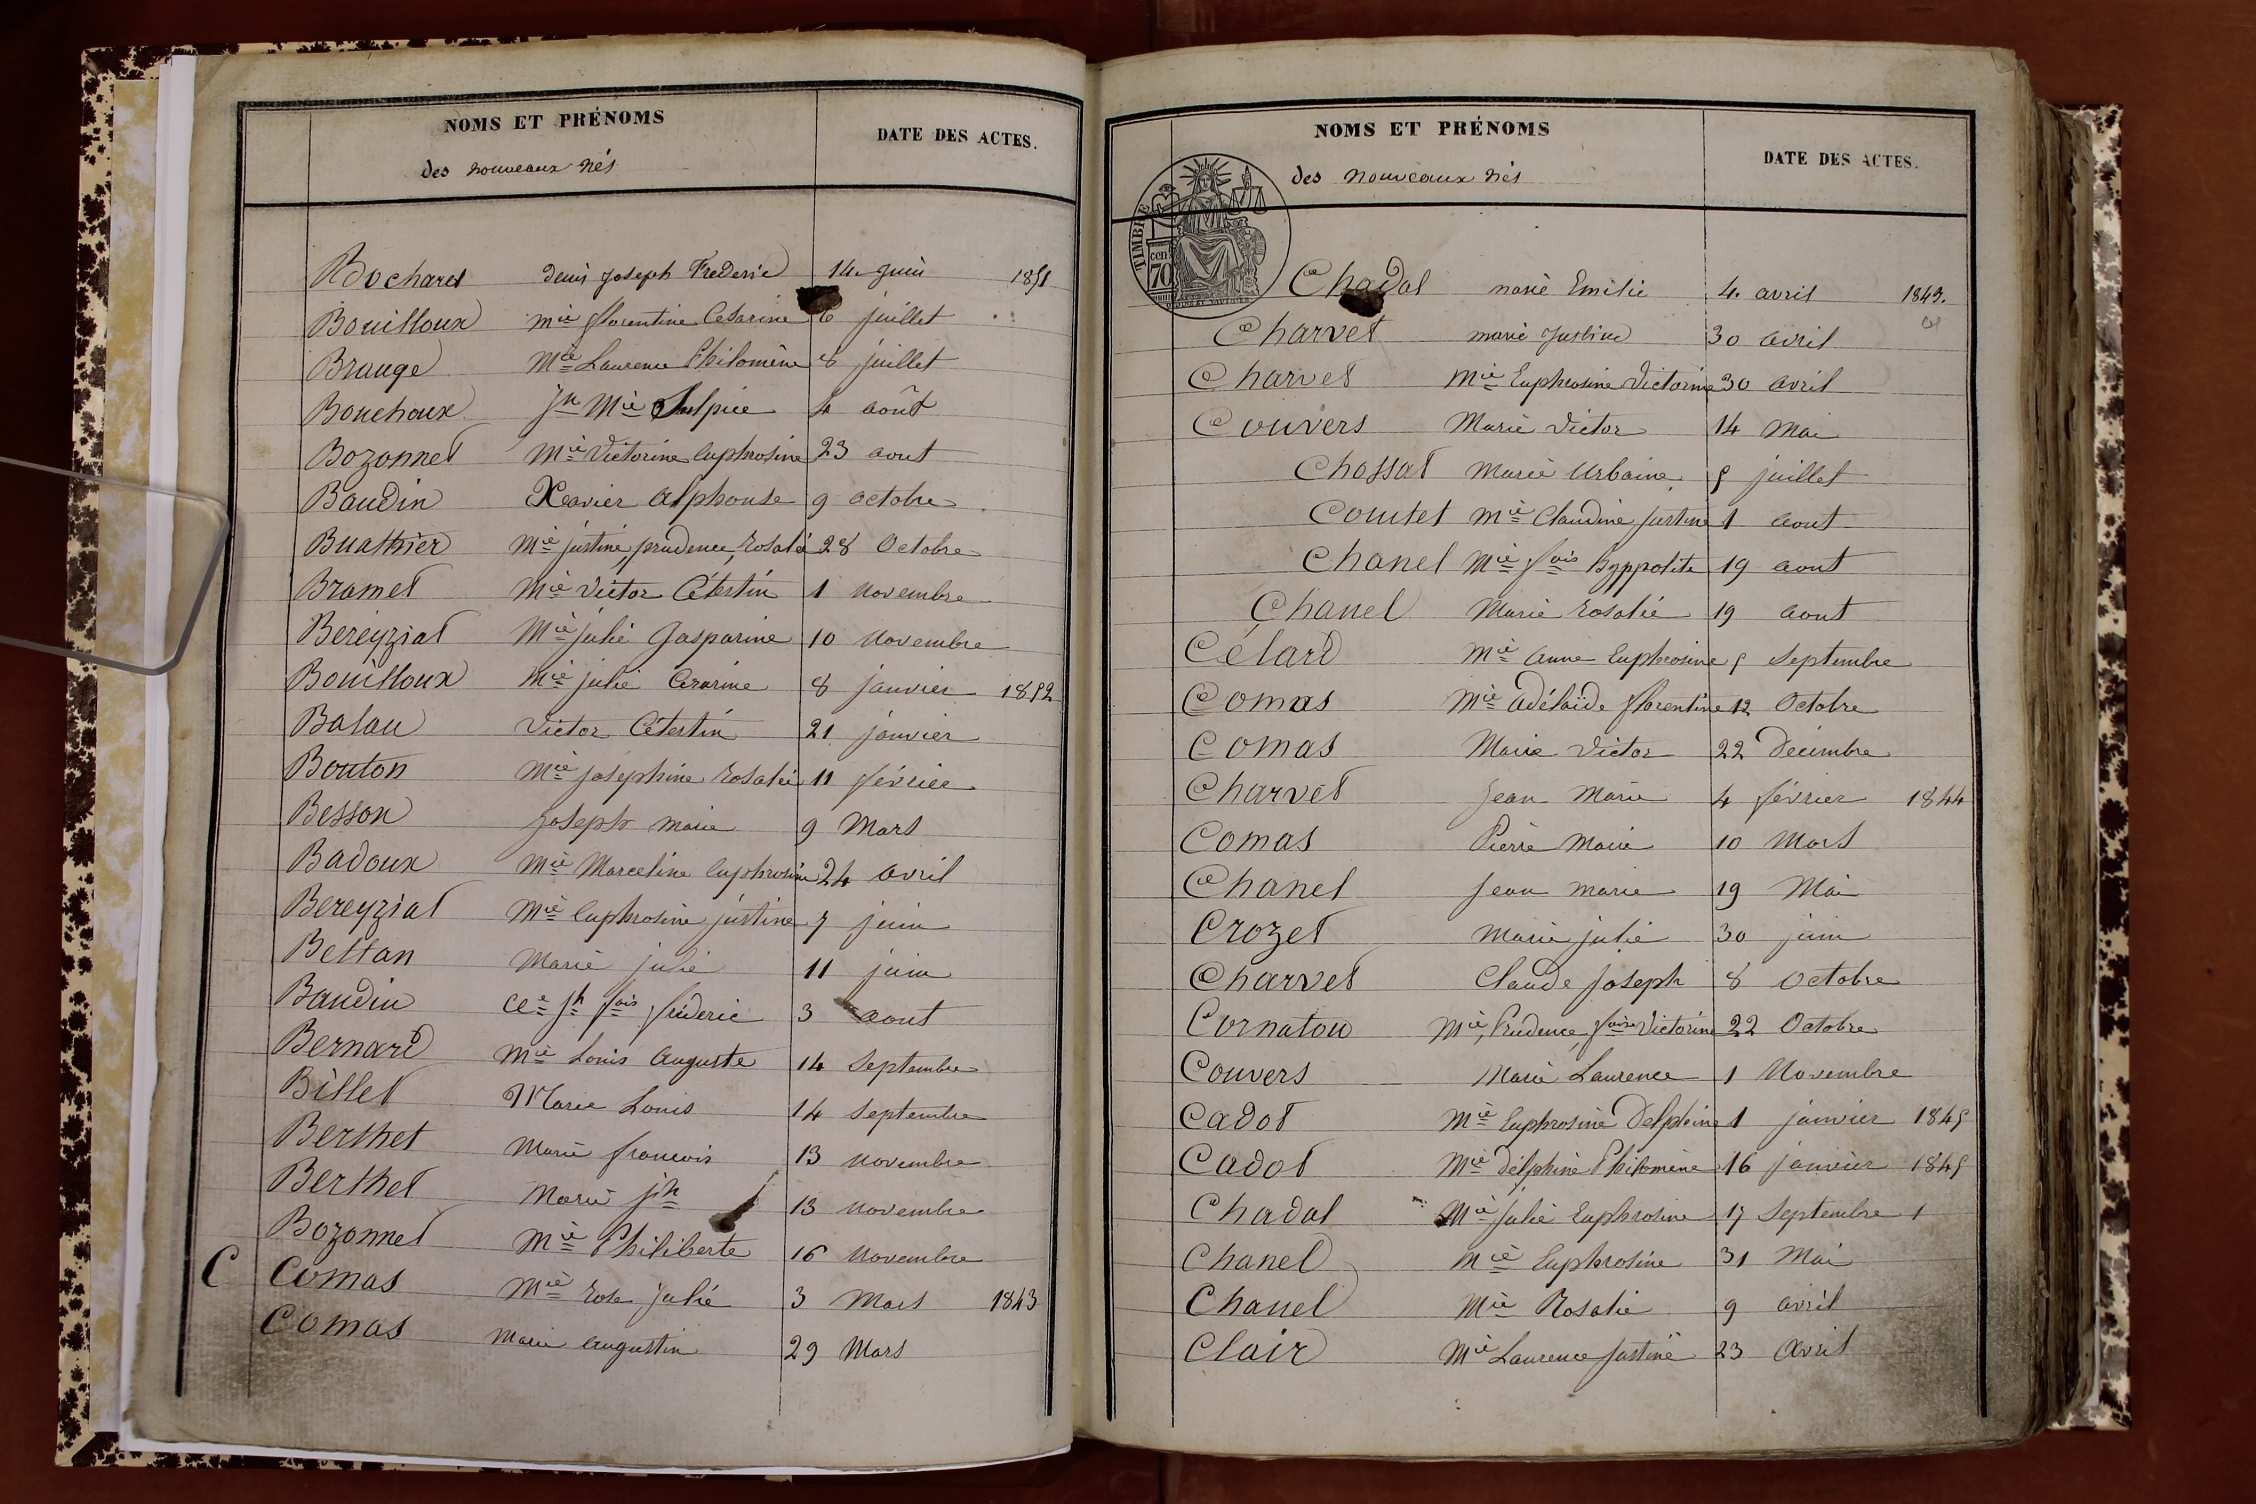 NOMS ET PRÉNOMS DATE DES ACTES.
des nouveaux nés
Bochard Denis Joseph Frederic 14 Juin 1851
Bouilloux Mie florentine Cesarine 6 juillet
Brauge Mie Laurence Philomène 8 juillet
Bouchoux Jn Mie Sulpice 4 août
Bozonnet Mie Victorine Euphrosine 23 aout
Baudin Xavier Alphonse 9 octobre
Buathier Mie justine prudence, Rosalie 28 Octobre
Bramet Mie Victor Célestin 1 Novembre
Bereyziat Mie Julie Gasparine 10 Novembre
Bouilloux Mie julie Cezarine 8 janvier 1852
Balau Victor Célestin 21 janvier
Bouton Mie josephine Rosalie 11 février
Besson Joseph Marie 9 Mars
Badoux Mie Marceline Euphrosine 24 avril
Bereyziat Mie Euphrosine justine 7 juin
Bettan Marie julie 11 juin
Baudin Cde Jh fois fréderic 3 aout
Bernard Mie Louis Auguste 14 Septembre
Billet Marie Louis 14 Septembre
Berthet Marie francois 13 Novembre
Berthet Marie jph 13 Novembre
Bozonnet Mie Philiberte 16 Novembre
C Comas Mie Rose Julie 3 Mars 1843
Comas Marie Augustin 29 Mars
NOMS ET PRÉNOMS DATE DES ACTES.
des nouveaux nés
TIMBRE
70 cen
Chadal marie Emilie 4 avril 1843.
Charvet marie Justine 30 avril
Charvet Mie Euphrosine Victorine 30 avril
Couvers Marie Victor 14 Mai
Chossat Marie Urbaine 5 juillet
Coutet Mie Claudine Justine 1 aout
Chanel Mie fois hyppolite 19 aout
Chanel Marie Rosalie 19 aout
Célard Mie Anne Euphrosine 5 Septembre
Comas Mie Adélaïde florentine 12 Octobre
Comas Marie Victor 22 Décembre
Charvet Jean Marie 4 février 1844
Comas Pierre Marie 10 Mars
Chanel Jean Marie 19 Mai
Crozet Marie julie 30 juin
Charvet Claude Joseph 8 Octobre
Cornaton Mie Prudence, foise Victorine 22 Octobre
Couvers Marie Laurence 1 Novembre
Cadot Mie Euphrosine Delphine 1 janvier 1845
Cadot Mie Delphine Philomène 16 janvier 1845
Chadal Mie Julie Euphrosine 17 Septembre 1
Chanel Mie Euphrosine 31 Mai
Chanel Mie Rosalie 9 avril
Clair Mie Laurence Justine 23 Avril